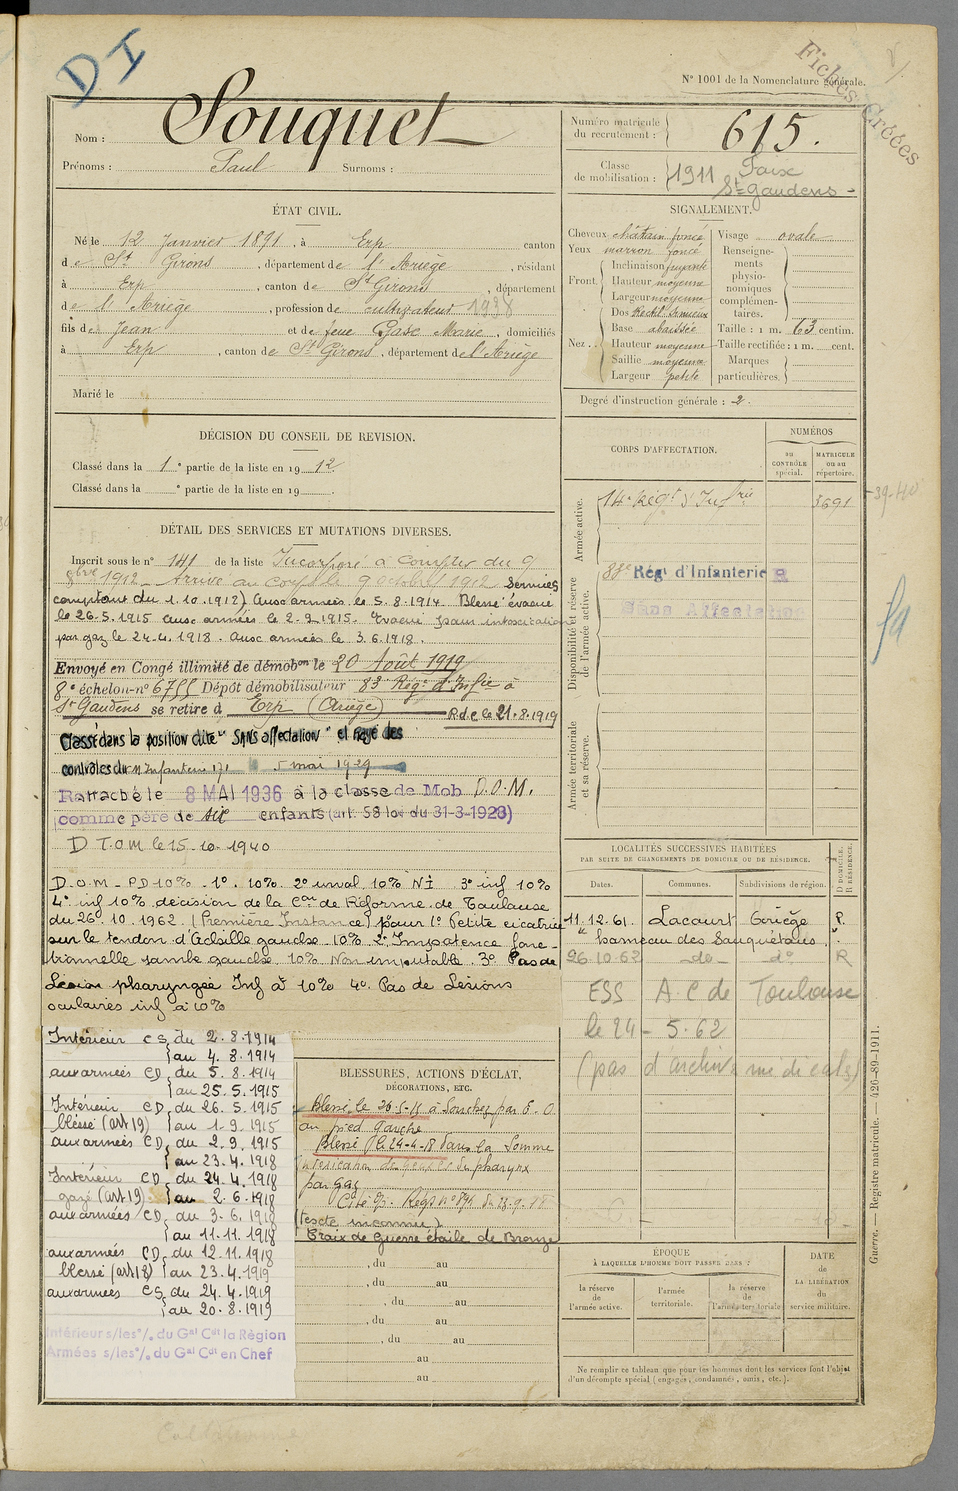 D I
Fiches Créées
N° 1001 de la Nomenclature générale.
Nom : Souquet
Prénoms : Paul Surnoms :
Numéro matricule du recrutement : 615.
Classe de mobilisation : 1911 Foix
St Gaudens
ÉTAT CIVIL.
Né le 12 Janvier 1891, à Erp, canton
de St Girons, département de l'Ariège, résidant
à Erp, canton de St Girons, département
de l'Ariège, profession de cultivateur 1938
fils de Jean et de feue Gase Marie, domiciliés
à Erp, canton de St Girons, département de l'Ariège
Marié le
SIGNALEMENT.
Cheveux châtain foncé
Yeux marron foncé
Front. Inclinaison fuyante
Hauteur moyenne
Largeur moyenne
Nez. Dos Rectil. sinueux
Base abaissée
Hauteur moyenne
Saillie moyenne
Largeur petite
Visage ovale
Renseignements physionomiques complémentaires.
Taille : 1 m. 63 centim.
Taille rectifiée : 1 m. cent.
Marques particulières.
Degré d'instruction générale : 2.
DÉCISION DU CONSEIL DE REVISION.
Classé dans la 1e partie de la liste en 1912
Classé dans la e partie de la liste en 19
DÉTAIL DES SERVICES ET MUTATIONS DIVERSES.
Inscrit sous le n° 141 de la liste Incorporé à compter du 9
8bre 1912 - Arrivé au corps le 9 octobre 1912 Services
comptant du 1.10.1912) Aux armées le 5.8.1914 Blessé évacué
le 26.5.1915 aux armées le 2.9.1915. Evacué pour intoxication
par gaz le 24.4.1918. Aux armées le 3.6.1918.
Envoyé en Congé illimité de démobon le 20 Août 1919
8e échelon n° 6755 Dépôt démobilisateur 83e Rég. d'Infie à
St Gaudens se retire à Erp (Ariège) R.d.c le 21.8.1919
Classé dans la position dite "SANS affectation" et rayé des
contrôles du n Infanterie 171 le 5 mai 1929
Rattaché le 8 MAI 1936 à la classe de Mob D.O.M.
comme père de six enfants (art. 58 loi du 31-3-1928)
D T.O.M le 15-10-1940
D.O.M - PD 10% - 1°. 10% 2° inval 10% NI 3° inf 10%
4° inf 10% décision de la Con de Réforme de Toulouse
du 26.10.1962. (Première Instance) pour 1° Petite cicatrice
sur le tendon d'Achille gauche 10% 2° Impotence fonc-
tionnelle jambe gauche 10% Non imputable. 3° Pas de
Lésion pharyngée Inf à 10% 4° Pas de Lésions
oculaires inf à 10%
CORPS D'AFFECTATION.
NUMÉROS
AU CONTRÔLE spécial.
MATRICULE ou au répertoire.
Armée active.
14e Régt d'Infrie 3691
39-40
Disponibilité et réserve de l'armée active.
83e Régt d'Infanterie
Sans Affectation
Armée territoriale et sa réserve.
LOCALITÉS SUCCESSIVES HABITÉES
PAR SUITE DE CHANGEMENTS DE DOMICILE OU DE RÉSIDENCE.
Dates. Communes. Subdivisions de région. D DOMICILE. R RÉSIDENCE.
11.12.61. Lacourt Ariège R.
" hameau des Sauquétous. ".
26.10.62 -do- -do- R
ESS A C de Toulouse
le 24-5-62
(pas d'archives médicales)
Intérieur CS du 2.8.1914
au 4.8.1914
aux armées CD du 5.8.1914
au 25.5.1915
Intérieur CD du 26.5.1915
blessé (art 19) au 1-9.1915
aux armées CD du 2.9.1915
au 23.4.1918
Intérieur CD du 24.4.1918
gazé (art 19) au 2.6.1918
aux armées CD du 3.6.1918
au 11.11.1918
aux armées CD du 12.11.1918
blessé (art 18) au 23.4.1919
aux armées CS du 24.4.1919
au 20.8.1919
Intérieur s/les °/. du Gal Cdt la Région
Armées s/les °/. du Gal Cdt en Chef
BLESSURES, ACTIONS D'ÉCLAT,
DÉCORATIONS, ETC.
Blessé le 26-5-15 à Souchez par E.O.
au pied gauche
Blessé le 24-4-18 dans la Somme
intoxication du pharynx
par gaz
Cité Rég n° 894 du
(texte inconnu)
Croix de Guerre étoile de Bronze
, du au
, du au
, du au
, du au
, du au
au
au
ÉPOQUE
À LAQUELLE L'HOMME DOIT PASSER DANS :
la réserve de l'armée active.
l'armée territoriale.
la réserve de l'armée territoriale
DATE
de
LA LIBÉRATION
du
service militaire.
Ne remplir ce tableau que pour les hommes dont les services font l'objet
d'un décompte spécial (engagés, condamnés, omis, etc.).
Guerre. — Registre matricule. — 426-89-1911.